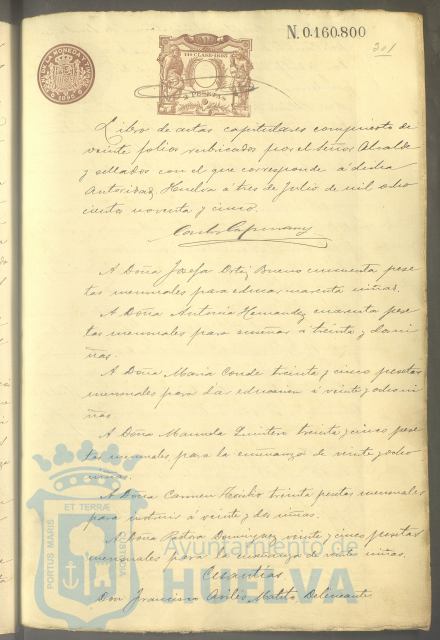 N. 0.160.800
301
11ª CLASE-1895
2 PESETAS
Libro de actas capitulares compuesto de
veinte folios rubricados por el Señor Alcalde
y sellados con el que corresponde á dicha
Autoridad. Huelva á tres de Julio de mil ocho
cientos noventa y cinco.
A Doña Josefa Ortiz Bueno cincuenta pese
tas mensuales para educar cuarenta niñas.
A Doña Antonia Hernandez cuarenta pese
tas mensuales para enseñar á treinta y dos ni
ñas.
A Doña Maria Conde treinta y cinco pesetas
mensuales para dar educacion á veinte y ocho ni
ñas
A Doña Manuela Quintero treinta y cinco pese
tas mensuales para la enseñanza de veinte y ocho
niñas.
A Doña Carmen treinta pesetas mensuales
para instruir á veinte y dos niñas.
A Doña Pastora Dominguez veinte y cinco pesetas
mensuales para la enseñanza de veinte niñas.
Cesantías
Don Francisco Aviles Matito Delineante
PORTUS MARIS ET TERRÆ CUSTODIA
Ayuntamiento de
HUELVA